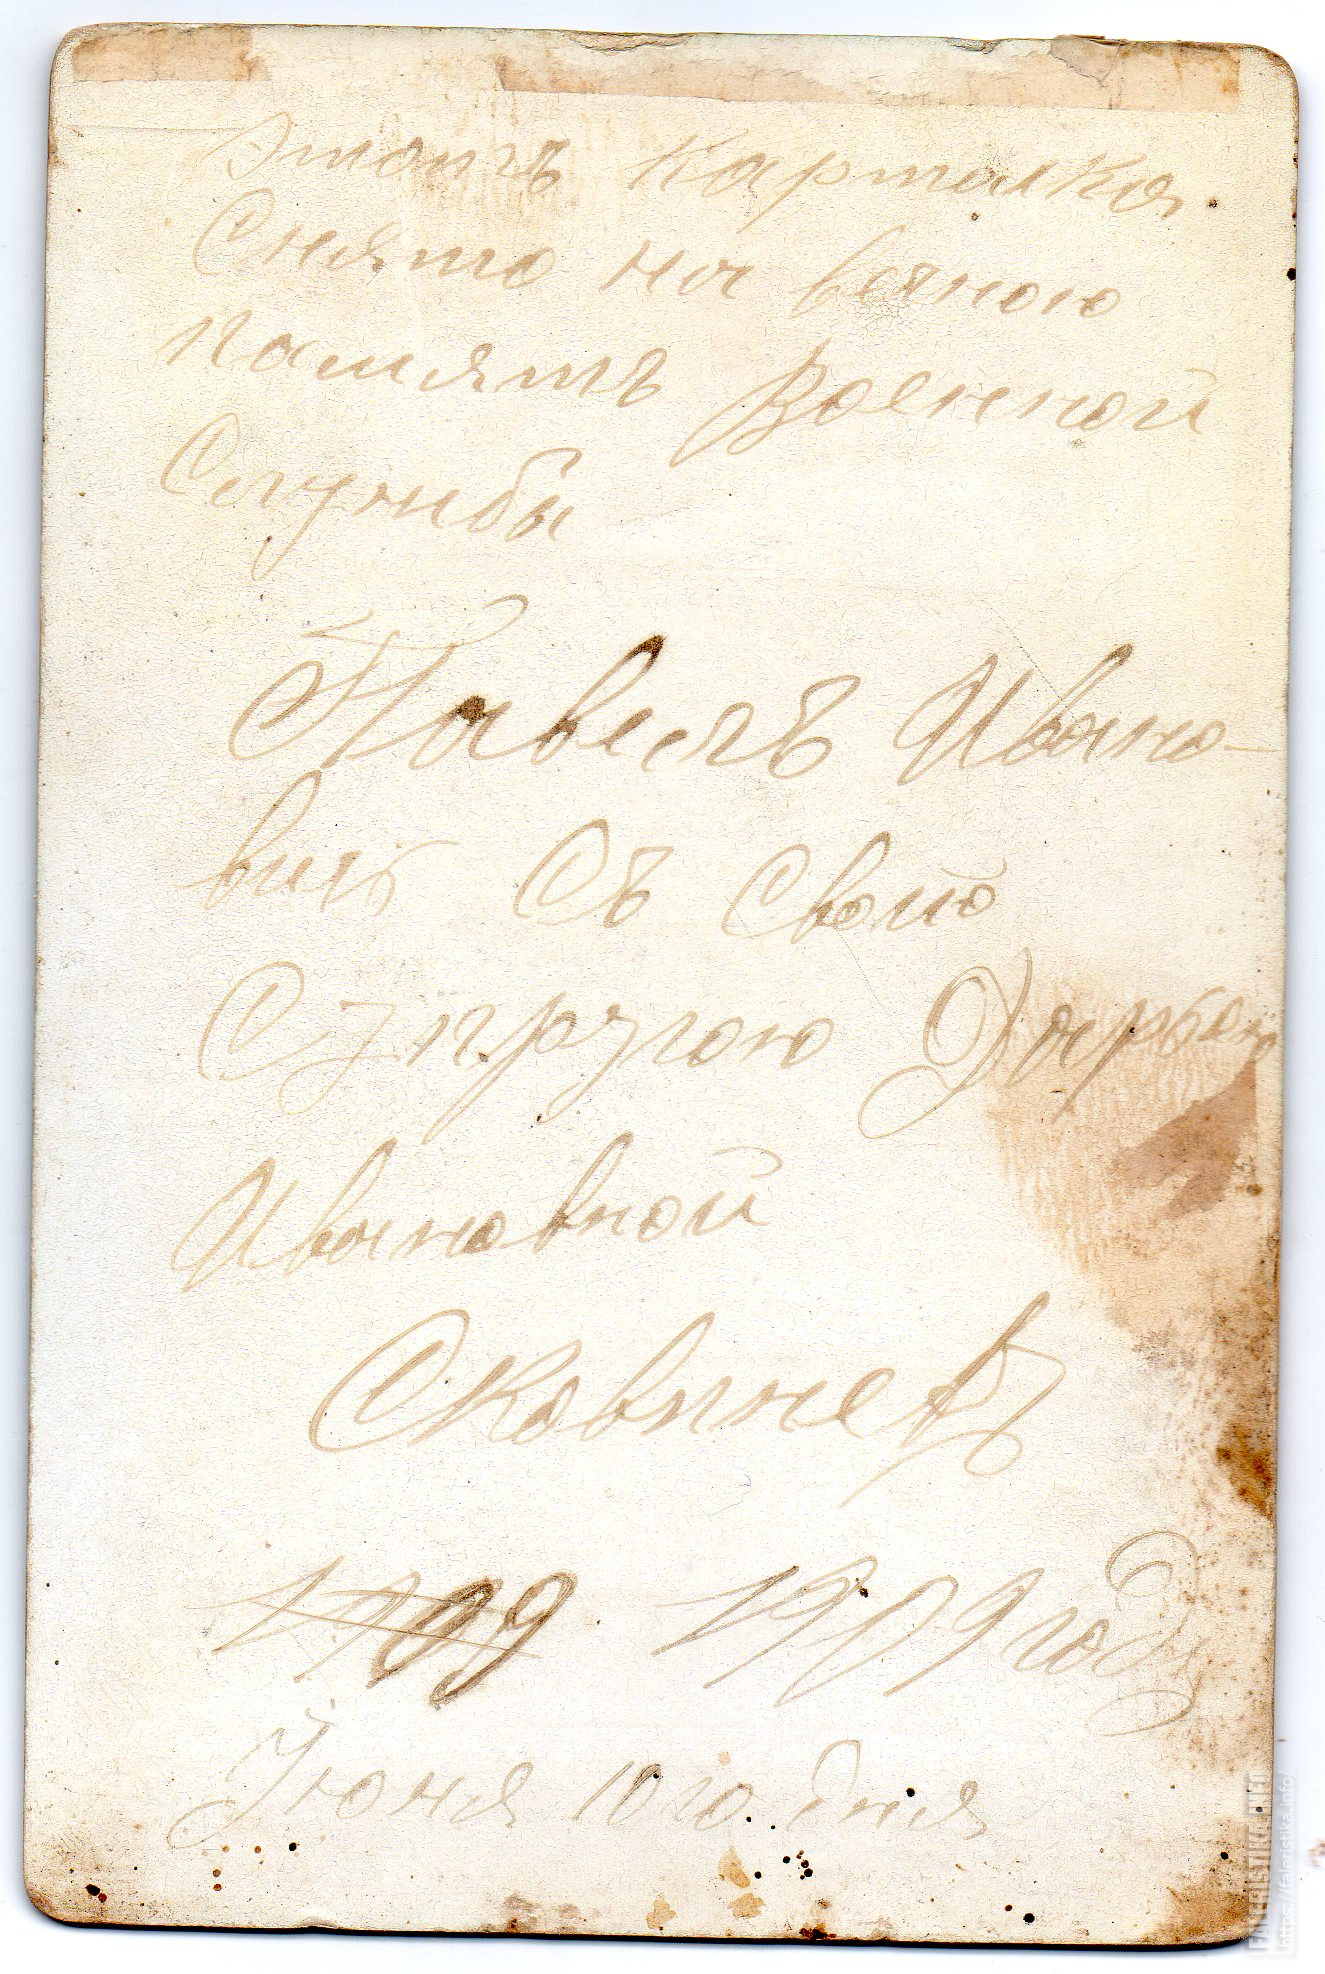 Этотъ карталка
Снято на вечною
памятъ Военной
Службы
Павелъ Ивано-
вичъ Съ Своіо
Супругою Дарьею
Ивановной
1909 1909 году
Іюня 10 го дня
FALERISTIKA.INFO
https://faleristika.info